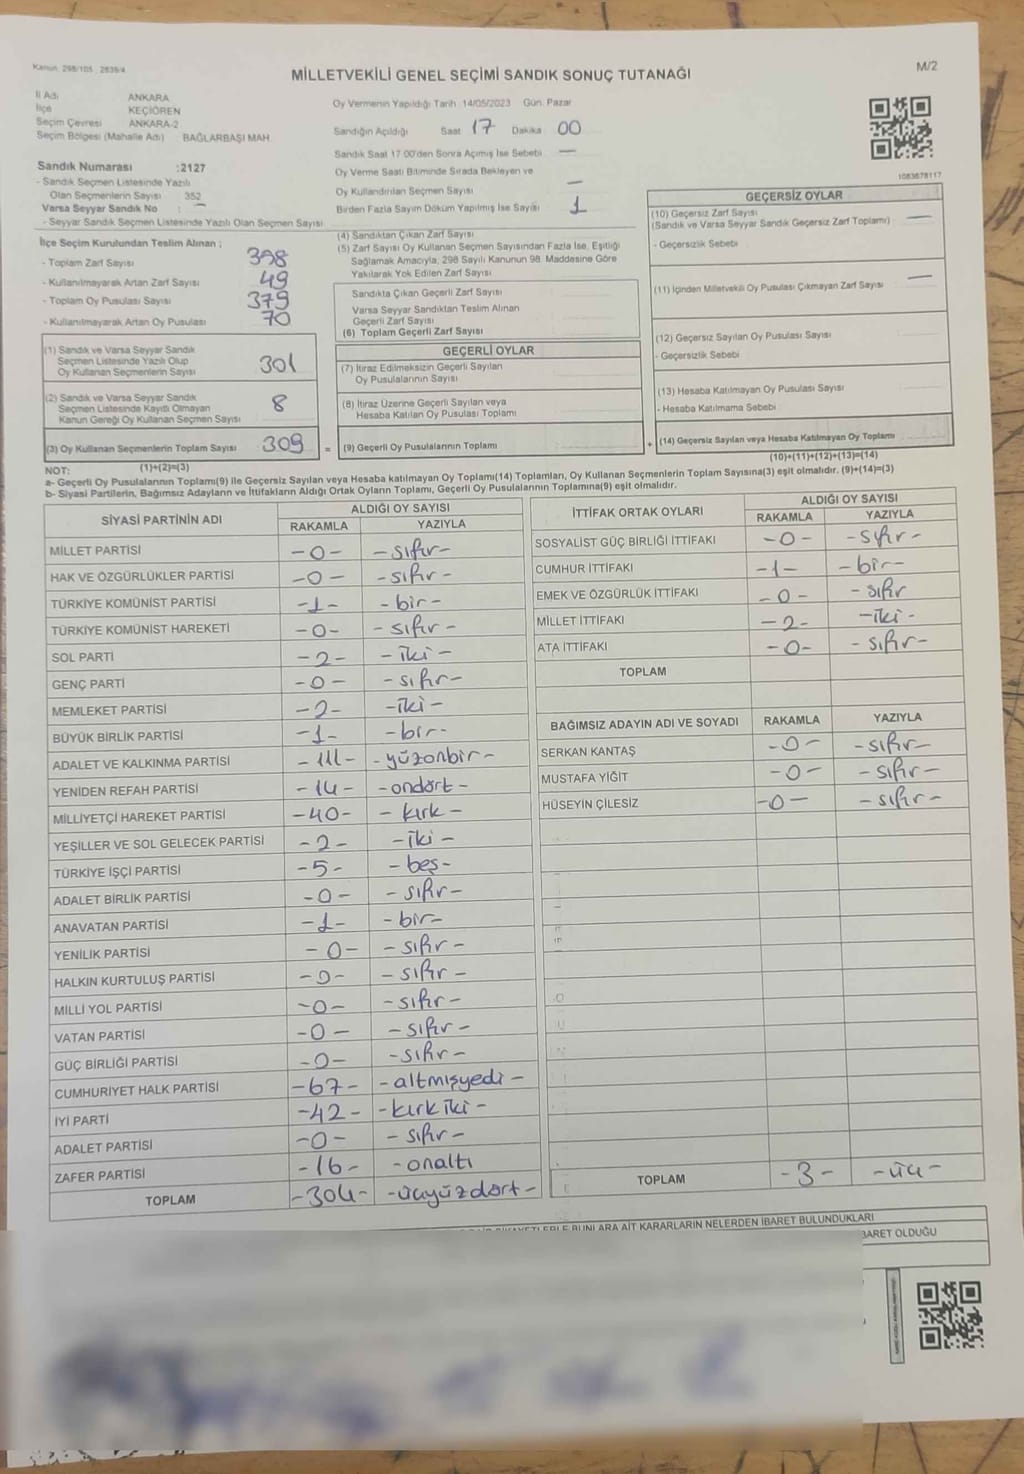 Kanun: 298/105 , 2839/4
MİLLETVEKİLİ GENEL SEÇİMİ SANDIK SONUÇ TUTANAĞI
M/2
İl Adı ANKARA
İlçe KEÇİÖREN
Seçim Çevresi ANKARA-2
Seçim Bölgesi (Mahalle Adı) BAĞLARBAŞI MAH.
Oy Vermenin Yapıldığı Tarih 14/05/2023 Gün: Pazar
Sandığın Açıldığı Saat 17 Dakika 00
Sandık Saat 17 00'den Sonra Açımış İse Sebebi —
Oy Verme Saati Bitiminde Sırada Bekleyen ve
Oy Kullandırılan Seçmen Sayısı —
Birden Fazla Sayım Döküm Yapılmış İse Sayısı 1
1083678117
Sandık Numarası :2127
- Sandık Seçmen Listesinde Yazılı
Olan Seçmenlerin Sayısı 352
Varsa Seyyar Sandık No : —
- Seyyar Sandık Seçmen Listesinde Yazılı Olan Seçmen Sayısı
İlçe Seçim Kurulundan Teslim Alınan ;
- Toplam Zarf Sayısı 358
- Kullanılmayarak Artan Zarf Sayısı 49
- Toplam Oy Pusulası Sayısı 379
- Kullanılmayarak Artan Oy Pusulası 70
(1) Sandık ve Varsa Seyyar Sandık
Seçmen Listesinde Yazılı Olup
Oy Kullanan Seçmenlerin Sayısı 301
(2) Sandık ve Varsa Seyyar Sandık
Seçmen Listesinde Kayıtlı Olmayan
Kanun Gereği Oy Kullanan Seçmen Sayısı 8
(3) Oy Kullanan Seçmenlerin Toplam Sayısı 309 =
(1)+(2)=(3)
(4) Sandıktan Çıkan Zarf Sayısı
(5) Zarf Sayısı Oy Kullanan Seçmen Sayısından Fazla İse, Eşitliği
Sağlamak Amacıyla, 298 Sayılı Kanunun 98. Maddesine Göre
Yakılarak Yok Edilen Zarf Sayısı
Sandıkta Çıkan Geçerli Zarf Sayısı
Varsa Seyyar Sandıktan Teslim Alınan
Geçerli Zarf Sayısı
(6) Toplam Geçerli Zarf Sayısı
GEÇERLİ OYLAR
(7) İtiraz Edilmeksizin Geçerli Sayılan
Oy Pusulalarının Sayısı
(8) İtiraz Üzerine Geçerli Sayılan veya
Hesaba Katılan Oy Pusulası Toplamı
(9) Geçerli Oy Pusulalarının Toplamı +
GEÇERSİZ OYLAR
(10) Geçersiz Zarf Sayısı —
(Sandık ve Varsa Seyyar Sandık Geçersiz Zarf Toplamı)
- Geçersizlik Sebebi
(11) İçinden Milletvekili Oy Pusulası Çıkmayan Zarf Sayısı —
(12) Geçersiz Sayılan Oy Pusulası Sayısı
- Geçersizlik Sebebi
(13) Hesaba Katılmayan Oy Pusulası Sayısı
- Hesaba Katılmama Sebebi
(14) Geçersiz Sayılan veya Hesaba Katılmayan Oy Toplamı
(10)+(11)+(12)+(13)=(14)
NOT:
a- Geçerli Oy Pusulalarının Toplamı(9) ile Geçersiz Sayılan veya Hesaba katılmayan Oy Toplamı(14) Toplamları, Oy Kullanan Seçmenlerin Toplam Sayısına(3) eşit olmalıdır. (9)+(14)=(3)
b- Siyasi Partilerin, Bağımsız Adayların ve İttifakların Aldığı Ortak Oyların Toplamı, Geçerli Oy Pusulalarının Toplamına(9) eşit olmalıdır.
SİYASİ PARTİNİN ADI ALDIĞI OY SAYISI
RAKAMLA YAZIYLA
MİLLET PARTİSİ -0- -sıfır-
HAK VE ÖZGÜRLÜKLER PARTİSİ -0- -sıfır-
TÜRKİYE KOMÜNİST PARTİSİ -1- -bir-
TÜRKİYE KOMÜNİST HAREKETİ -0- -sıfır-
SOL PARTİ -2- -iki-
GENÇ PARTİ -0- -sıfır-
MEMLEKET PARTİSİ -2- -iki-
BÜYÜK BİRLİK PARTİSİ -1- -bir-
ADALET VE KALKINMA PARTİSİ -111- -yüzonbir-
YENİDEN REFAH PARTİSİ -14- -ondört-
MİLLİYETÇİ HAREKET PARTİSİ -40- -kırk-
YEŞİLLER VE SOL GELECEK PARTİSİ -2- -iki-
TÜRKİYE İŞÇİ PARTİSİ -5- -beş-
ADALET BİRLİK PARTİSİ -0- -sıfır-
ANAVATAN PARTİSİ -1- -bir-
YENİLİK PARTİSİ -0- -sıfır-
HALKIN KURTULUŞ PARTİSİ -0- -sıfır-
MİLLİ YOL PARTİSİ -0- -sıfır-
VATAN PARTİSİ -0- -sıfır-
GÜÇ BİRLİĞİ PARTİSİ -0- -sıfır-
CUMHURİYET HALK PARTİSİ -67- -altmışyedi-
İYİ PARTİ -42- -kırkiki-
ADALET PARTİSİ -0- -sıfır-
ZAFER PARTİSİ -16- -onaltı
TOPLAM -304- -üçyüzdört-
İTTİFAK ORTAK OYLARI ALDIĞI OY SAYISI
RAKAMLA YAZIYLA
SOSYALİST GÜÇ BİRLİĞİ İTTİFAKI -0- -sıfır-
CUMHUR İTTİFAKI -1- -bir-
EMEK VE ÖZGÜRLÜK İTTİFAKI -0- -sıfır
MİLLET İTTİFAKI -2- -iki-
ATA İTTİFAKI -0- -sıfır-
TOPLAM
BAĞIMSIZ ADAYIN ADI VE SOYADI RAKAMLA YAZIYLA
SERKAN KANTAŞ -0- -sıfır-
MUSTAFA YİĞİT -0- -sıfır-
HÜSEYİN ÇİLESİZ -0- -sıfır-
TOPLAM -3- -üç-
BUNLARA AİT KARARLARIN NELERDEN İBARET BULUNDUKLARI
BARET OLDUĞU